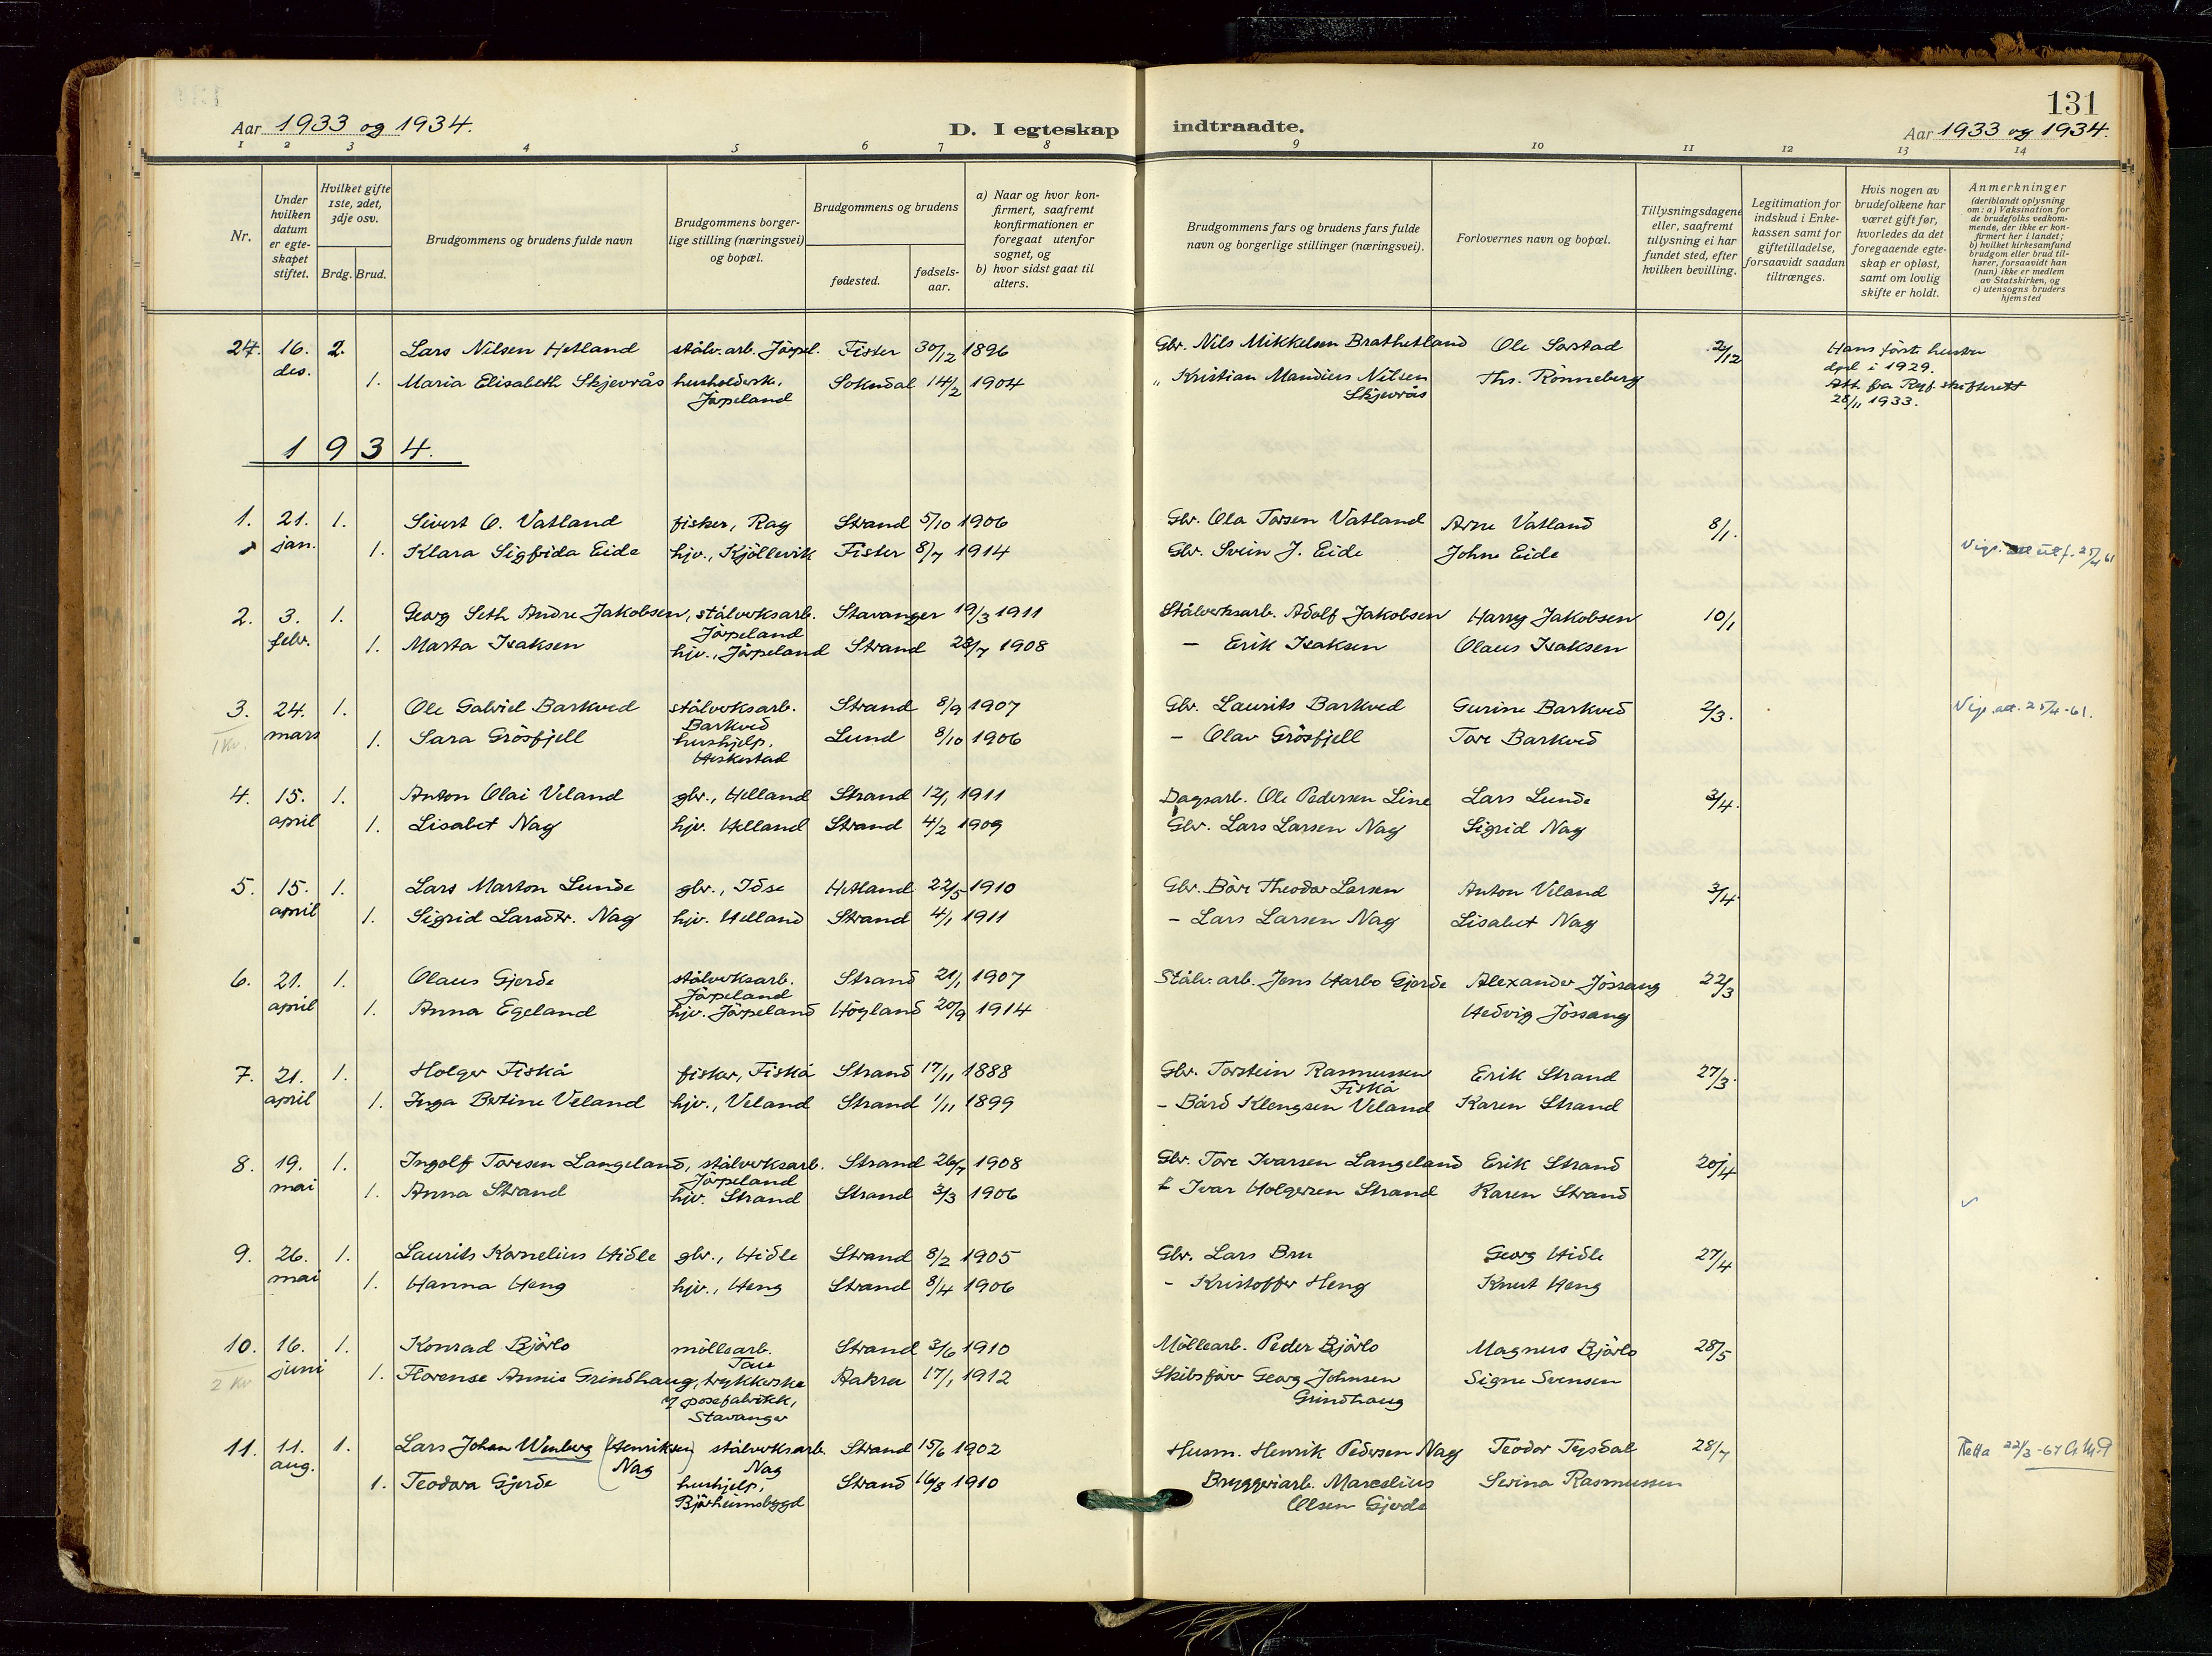 131
Aar 1933 og 1934.
D. I egteskap indtraadte.
Aar 1933 og 1934.
1 2 3 4 5 6 7 8 9 10 11 12 13 14
Nr.
Under hvilken datum er egteskapet stiftet.
Hvilket gifte 1ste, 2det, 3dje osv.
Brdg. Brud.
Brudgommens og brudens fulde navn
Brudgommens borgerlige stilling (næringsvei) og bopæl.
Brudgommens og brudens
fødested.
fødselsaar.
a) Naar og hvor konfirmert, saafremt konfirmationen er foregaat utenfor sognet, og
b) hvor sidst gaat til alters.
Brudgommens fars og brudens fars fulde navn og borgerlige stillinger (næringsvei).
Forlovernes navn og bopæl.
Tillysningsdagene eller, saafremt tillysning ei har fundet sted, efter hvilken bevilling.
Legitimation for indskud i Enkekassen samt for giftetilladelse, forsaavidt saadan tiltrænges.
Hvis nogen av brudefolkene har været gift før, hvorledes da det foregaaende egteskap er opløst, samt om lovlig skifte er holdt.
Anmerkninger
(deriblandt oplysning om: a) Vaksination for de brudefolks vedkommende, der ikke er konfirmert her i landet;
b) hvilket kirkesamfund brudgom eller brud tilhører, forsaavidt han (hun) ikke er medlem av Statskirken, og
c) utensogns bruders hjemsted
24. 16. 2. Lars Nilsen Hetland stålv.arb. Jörpel. Fister 30/12 1896 Gbr. Nils Mikkelsen Brathetland Ole Sastad 2/12 Hans förste hustru
des. 1. Maria Elisabeth Skjevrås husholderske, Sokndal 14/2 1904 " Kristian Mandius Nilsen Ths. Rönneberg död i 1929.
Jörpeland Skjevrås Att. fra Ryf. skifterett
28/11 1933.
1934.
1. 21. 1. Sivert O. Vatland fisker, Rag Strand 5/10 1906 Gbr. Ola Torsen Vatland Arne Vatland 8/1.
jan. 1. Klara Sigfrida Eide hjv., Kjöllevik Fister 8/7 1914 Gbr. Svein J. Eide Johne Eide Vigs. att utf. 25/4 61
2. 3. 1. Georg Seth Andre Jakobsen, stålverksarb. Stavanger 19/3 1911 Stålverksarb. Adolf Jakobsen Harry Jakobsen 10/1
Jörpeland
febr. 1. Marta Isaksen hjv., Jörpeland Strand 28/7 1908 - Erik Isaksen Olaus Isaksen
3. 24. 1. Ole Gabriel Barkved stålverksarb. Strand 8/9 1907 Gbr. Laurits Barkved Gurine Barkved 2/3. Vigs.att. 25/4-61.
Barkved
1 Kv. mars 1. Sara Grösfjell hushjelp, Lund 8/10 1906 - Olav Grösfjell Tore Barkved
Heskestad
4. 15. 1. Anton Olai Veland gbr., Helland Strand 12/1 1911 Dagsarb. Ole Pedersen Line Lars Lunde 3/4.
april 1. Lisabet Nag hjv. Helland Strand 4/2 1909 Gbr. Lars Larsen Nag Sigrid Nag
5. 15. 1. Lars Marton Lunde gbr., Idse Hetland 22/5 1910 Gbr. Böre Theodor Larsen Anton Veland 3/4
april 1. Sigrid Larsdtr. Nag hjv. Helland Strand 4/1 1911 - Lars Larsen Nag Lisabet Nag
6. 21. 1. Olaus Gjerde stålverksarb. Strand 21/1 1907 Stålv.arb. Jens Harbo Gjerde Alexander Jössang 22/3
Jörpeland
april 1. Anna Egeland hjv. Jörpeland Högland 20/9 1914 Hedvig Jössang
7. 21. 1. Holger Fiskå fisker, Fiskå Strand 17/11 1888 Gbr. Torstein Rasmussen Erik Strand 27/3.
Fiskå
april 1. Inga Bertine Veland hjv., Veland Strand 1/11 1899 - Bård Klengsen Veland Karen Strand
8. 19. 1. Ingolf Toresen Langeland, stålverksarb. Strand 26/7 1908 Gbr. Tore Ivarsen Langeland Erik Strand 20/4
Jörpeland
mai 1. Anna Strand hjv. Strand Strand 3/3 1906 Ivar Holgersen Strand Karen Strand
9. 26. 1. Laurits Kornelius Hidle gbr., Hidle Strand 8/2 1905 Gbr. Lars Bru Georg Hidle 27/4
mai 1. Hanna Heng hjv., Heng Strand 8/4 1906 - Kristoffer Heng Knut Heng
10. 16. 1. Konrad Björlo möllearb. Strand 3/6 1910 Möllearb. Peder Björlo Magnus Björlo 28/5
Tau
2 Kv juni 1. Florense Annis Grindhaug, trykkerske Aakra 17/1 1912 Skibsförer Georg Johnsen Signe Svensen
posefabrikk, Grindhaug
Stavanger
11. 11. 1. Lars Johan Wenberg (Henriksen) stålverksarb. Strand 15/6 1902 Husm. Henrik Pedersen Nag Teodor Tysdal 28/7 Retta 22/3-67
aug. Nag Nag
1. Teodora Gjerde hushjelp, Strand 16/8 1910 Bryggeriarb. Marselius Serina Rasmussen
Björheimsbygd Olsen Gjerde